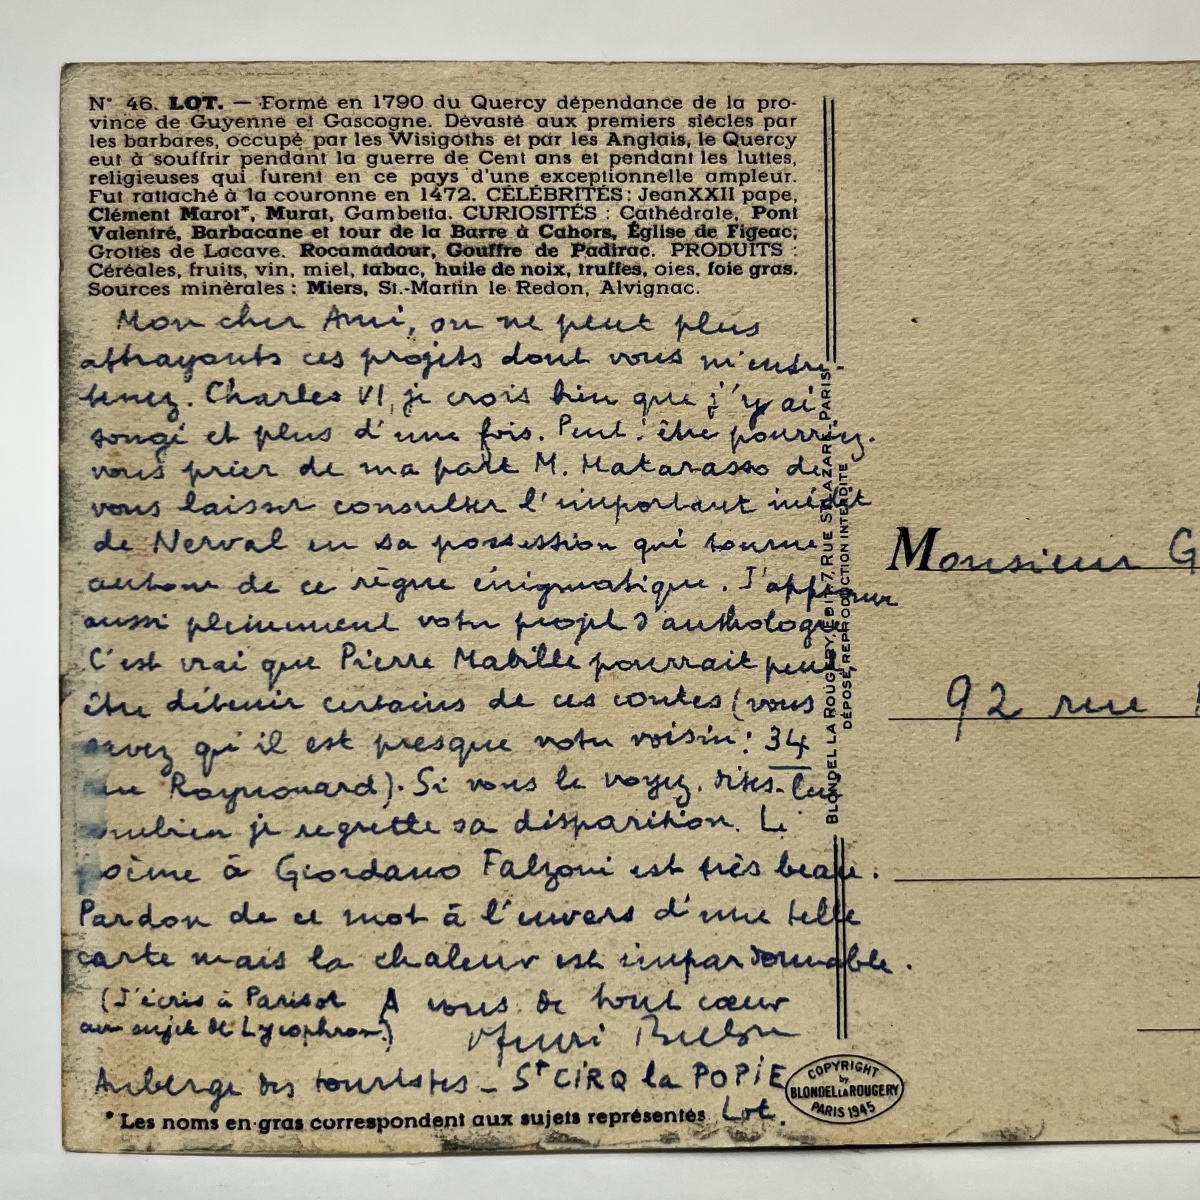 N° 46. LOT. — Formé en 1790 du Quercy dépendance de la pro-
vince de Guyenne et Gascogne. Dévasté aux premiers siècles par
les barbares, occupé par les Wisigoths et par les Anglais, le Quercy
eut à souffrir pendant la guerre de Cent ans et pendant les luttes,
religieuses qui furent en ce pays d'une exceptionnelle ampleur.
Fut rattaché à la couronne en 1472. CÉLÉBRITÉS : Jean XXII pape,
Clément Marot*, Murat, Gambetta. CURIOSITÉS : Cathédrale, Pont
Valentré, Barbacane et tour de la Barre à Cahors, Église de Figeac;
Grottes de Lacave. Rocamadour, Gouffre de Padirac. PRODUITS :
Céréales, fruits, vin, miel, tabac, huile de noix, truffes, oies, foie gras.
Sources minérales : Miers, St.-Martin le Redon, Alvignac.
Mon cher Ami, on ne peut plus
attrayants ces projets dont vous m'entre-
tenez. Charles VI, je crois bien que j'y ai
songé et plus d'une fois. Peut-être pourriez-
vous prier de ma part M. Matarasso de
vous laisser consulter l'important inédit
de Nerval en sa possession qui tourne
autour de ce règne énigmatique. J'approuve
aussi pleinement votre projet d'anthologie
C'est vrai que Pierre Mabille pourrait peut-
être détenir certains de ces contes (vous
savez qu'il est presque votre voisin : 34
rue Raynouard). Si vous le voyez, dites-lui
combien je regrette sa disparition. Le
poème à Giordano Falzoni est très beau.
Pardon de ce mot à l'envers d'une telle
carte mais la chaleur est impardonnable.
(J'écris à Parisot
au sujet de Lycophron.)
A vous de tout cœur
Auberge des touristes – St CIRQ la POPIE
Lot.
* Les noms en gras correspondent aux sujets représentés
BLONDEL LA ROUGERY, EDIT. 7, RUE ST LAZARE, PARIS
DÉPOSÉ, REPRODUCTION INTERDITE
COPYRIGHT
by
BLONDEL LA ROUGERY
PARIS 1945
Monsieur G
92 rue